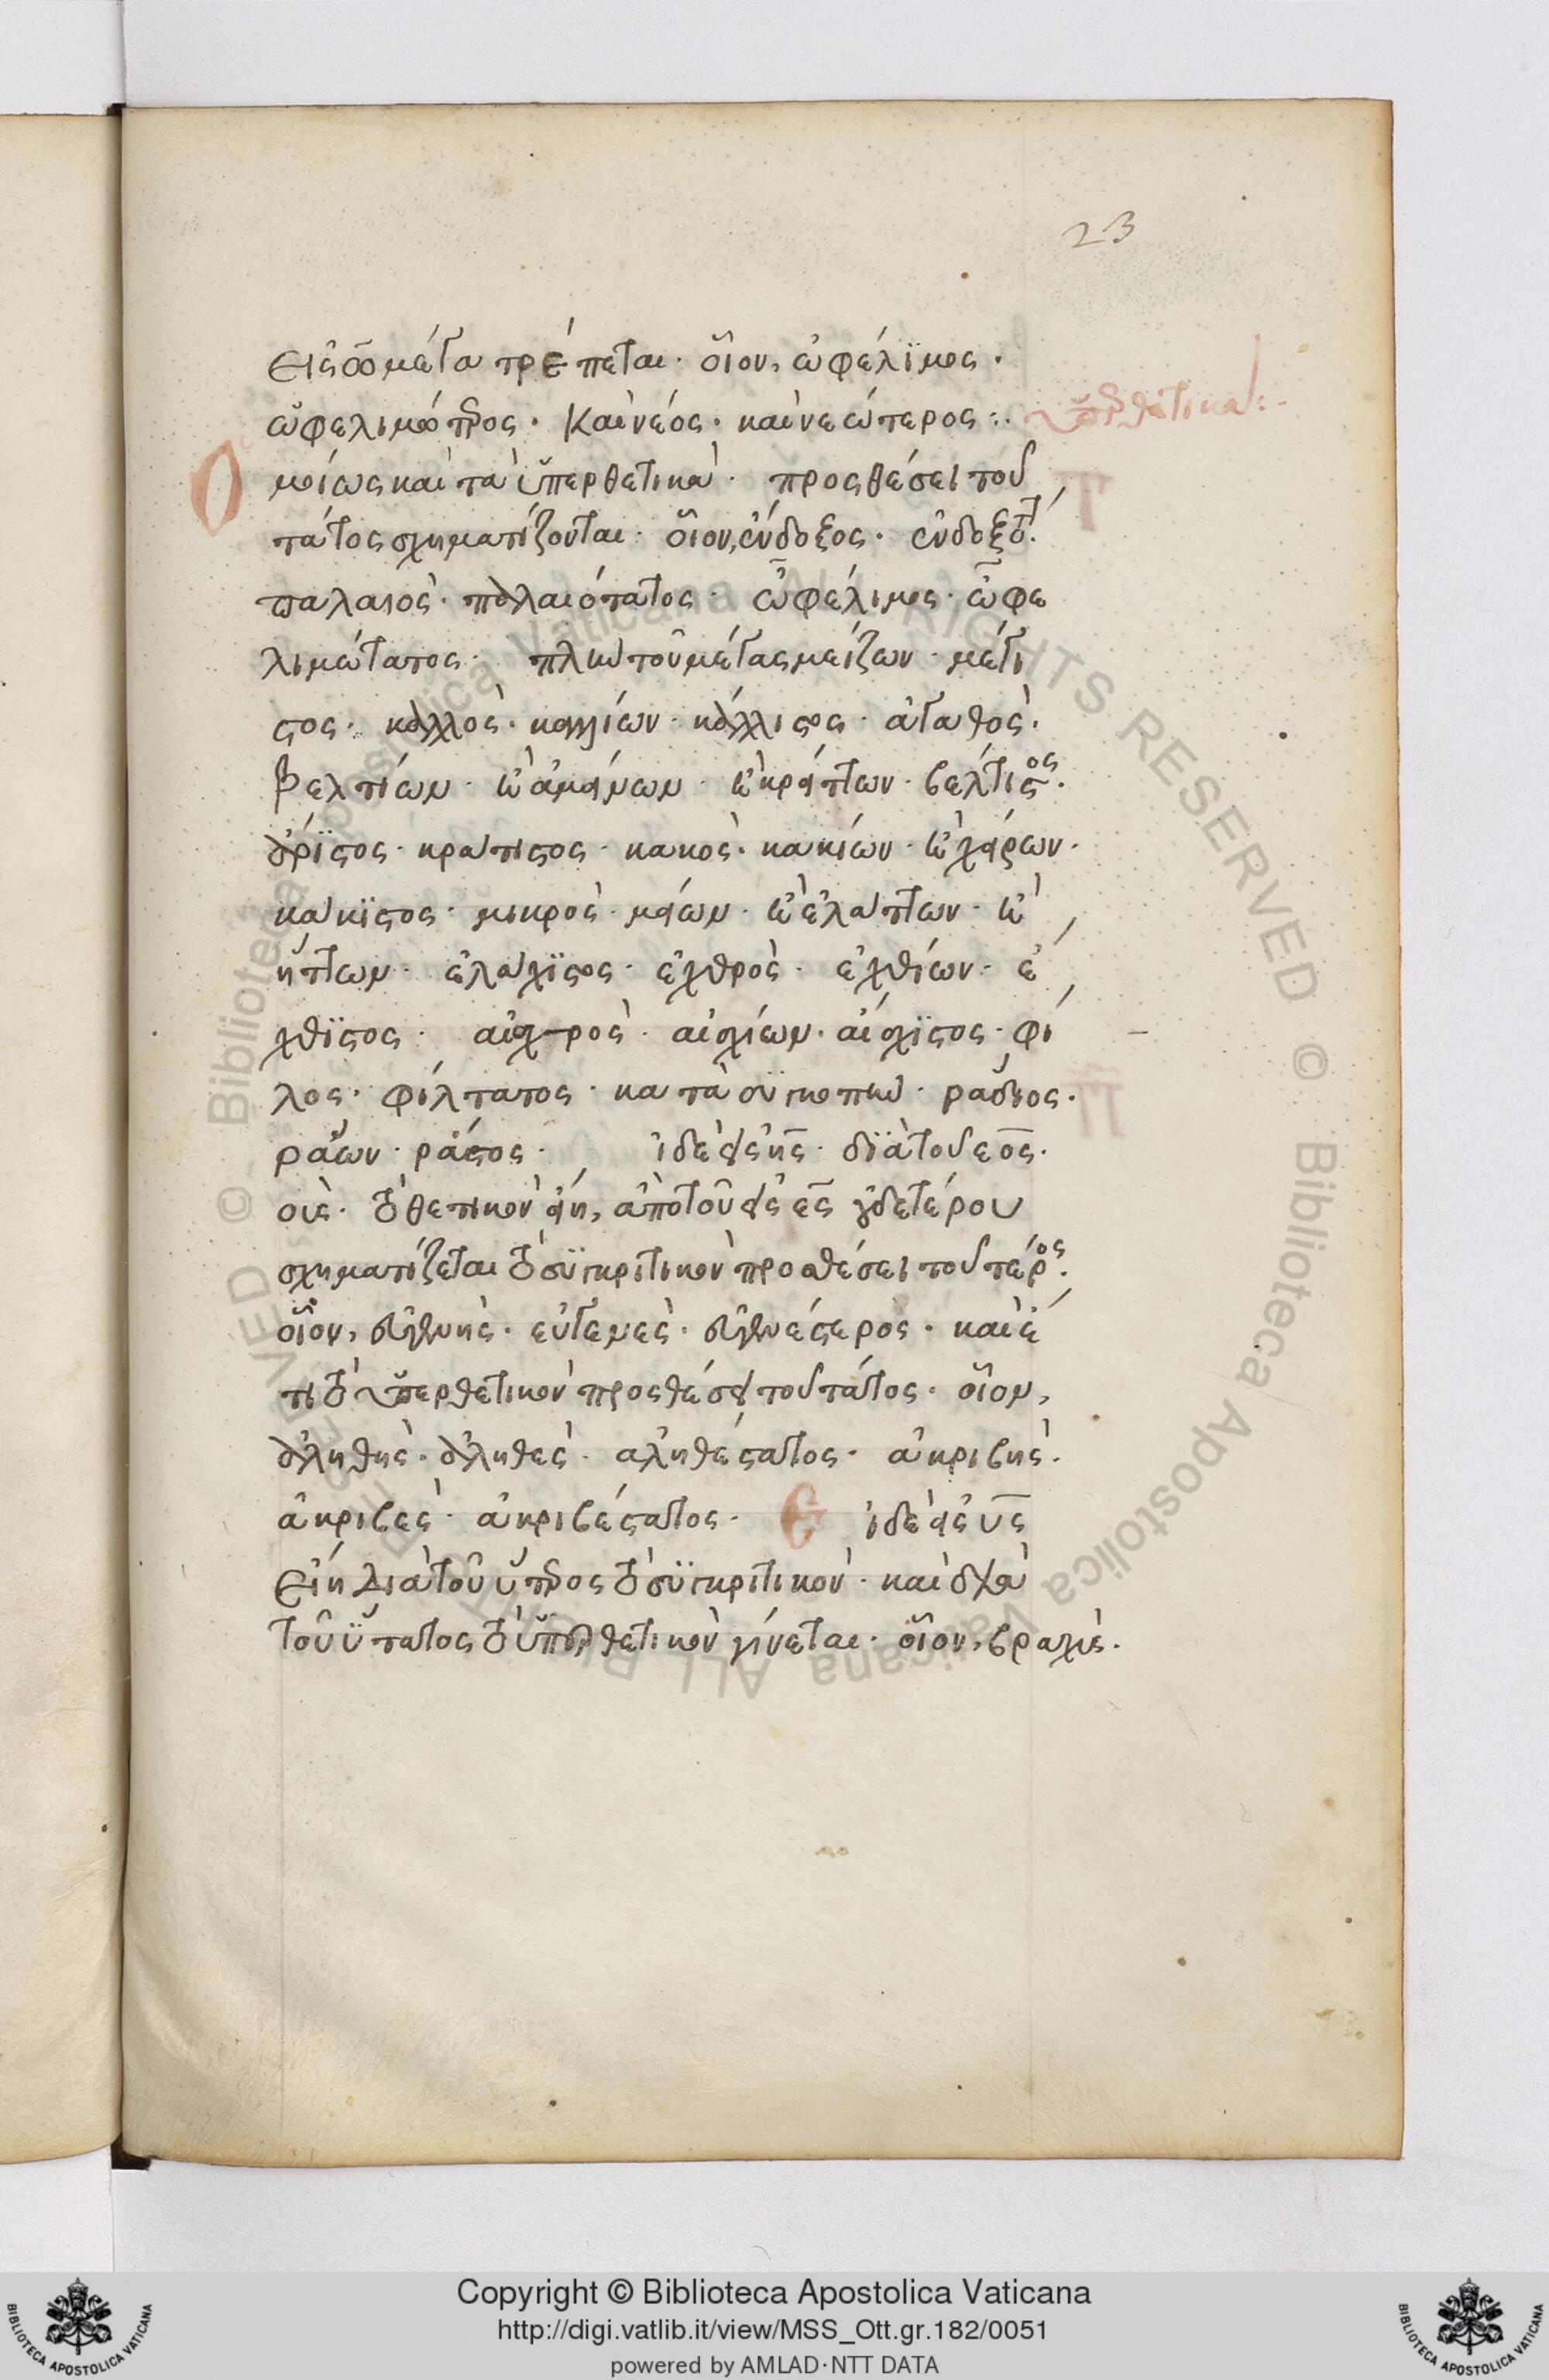 23
εἰς ω μέγα τρέπεται· οἷον, ὠφέλϊμος·
ὠφελιμώτερος· Καὶ νέος· καὶ νεώτερος :·
ὑπερθετικά:·
Ὁμοίως καὶ τὰ ὑπερθετικὰ· προςθέσει τοῦ
τάτος σχηματίζονται· οἷον, ἔνδοξος· ἐνδοξότ
παλαιὸς· παλαιότατος· ὠφέλιμος· ὠφε
λιμώτατος· πλὴν τοῦ μέγας μείζων· μέγι
στος· καλλὸς· καλλίων· κάλλιστος· ἀγαθὸς·
βελτίων· καὶ ἀμείνων· καὶ κρείττων· βέλτιστος·
ἄρϊστος· κράτιστος· κακὸς· κακίων· καὶ χείρων·
κάκϊστος· μικρὸς· μείων· καὶ ἐλάττων· καὶ
ἥττων· ἐλάχϊστος· ἐχθρὸς· ἐχθίων· ἔ
χθϊστος· αἰσχρὸς· αἰσχίων· αἴσχϊστος· φί
λος· φίλτατος· κατὰ συγκοπὴν· ράδιος·
ράων· ράστος· ἰδὲ εἰς ης· δϊὰ τοῦ εος·
ους· τὸ θετικὸν εἴη, ἀπὸ τοῦ εἰς ες οὐδετέρου
σχηματίζεται τὸ συγκριτικὸν προσθέσει τοῦ τέρος·
οἷον, εὐγενὴς· εὐγενὲς· εὐγενέστερος· καὶ ἔ
τι τὸ ὑπερθετικὸν προςθέσει τοῦ τάτος· οἷον,
ἀληθὴς· ἀληθὲς· αληθέστατος· ἀκριβὴς·
ἀκριβὲς· ἀκριβέστατος· Ε ἰδὲ εἰς υς
εἴη διὰ τοῦ ύτερος τὸ συγκριτικὸν· καὶ διὰ
τοῦ ύτατος τὸ ὑπερθετικὸν γίνεται· οἷον, βραχὺς·
Copyright © Biblioteca Apostolica Vaticana
http://digi.vatlib.it/view/MSS_Ott.gr.182/0051
powered by AMLAD·NTT DATA